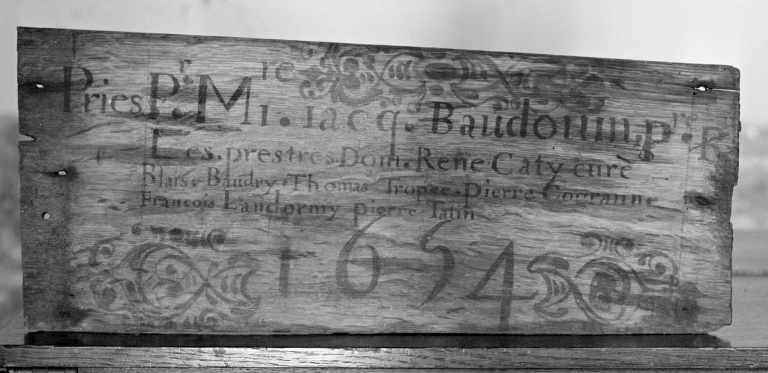 Pries Pr. Mre 1. Iacq. Baudouin, pre. R
Les. prestres. Dom. Rene Caty curé
Blaise Baudry. Thomas Tropee. Pierre. Corranne
Francois Landormy pierre. Tatin
1654